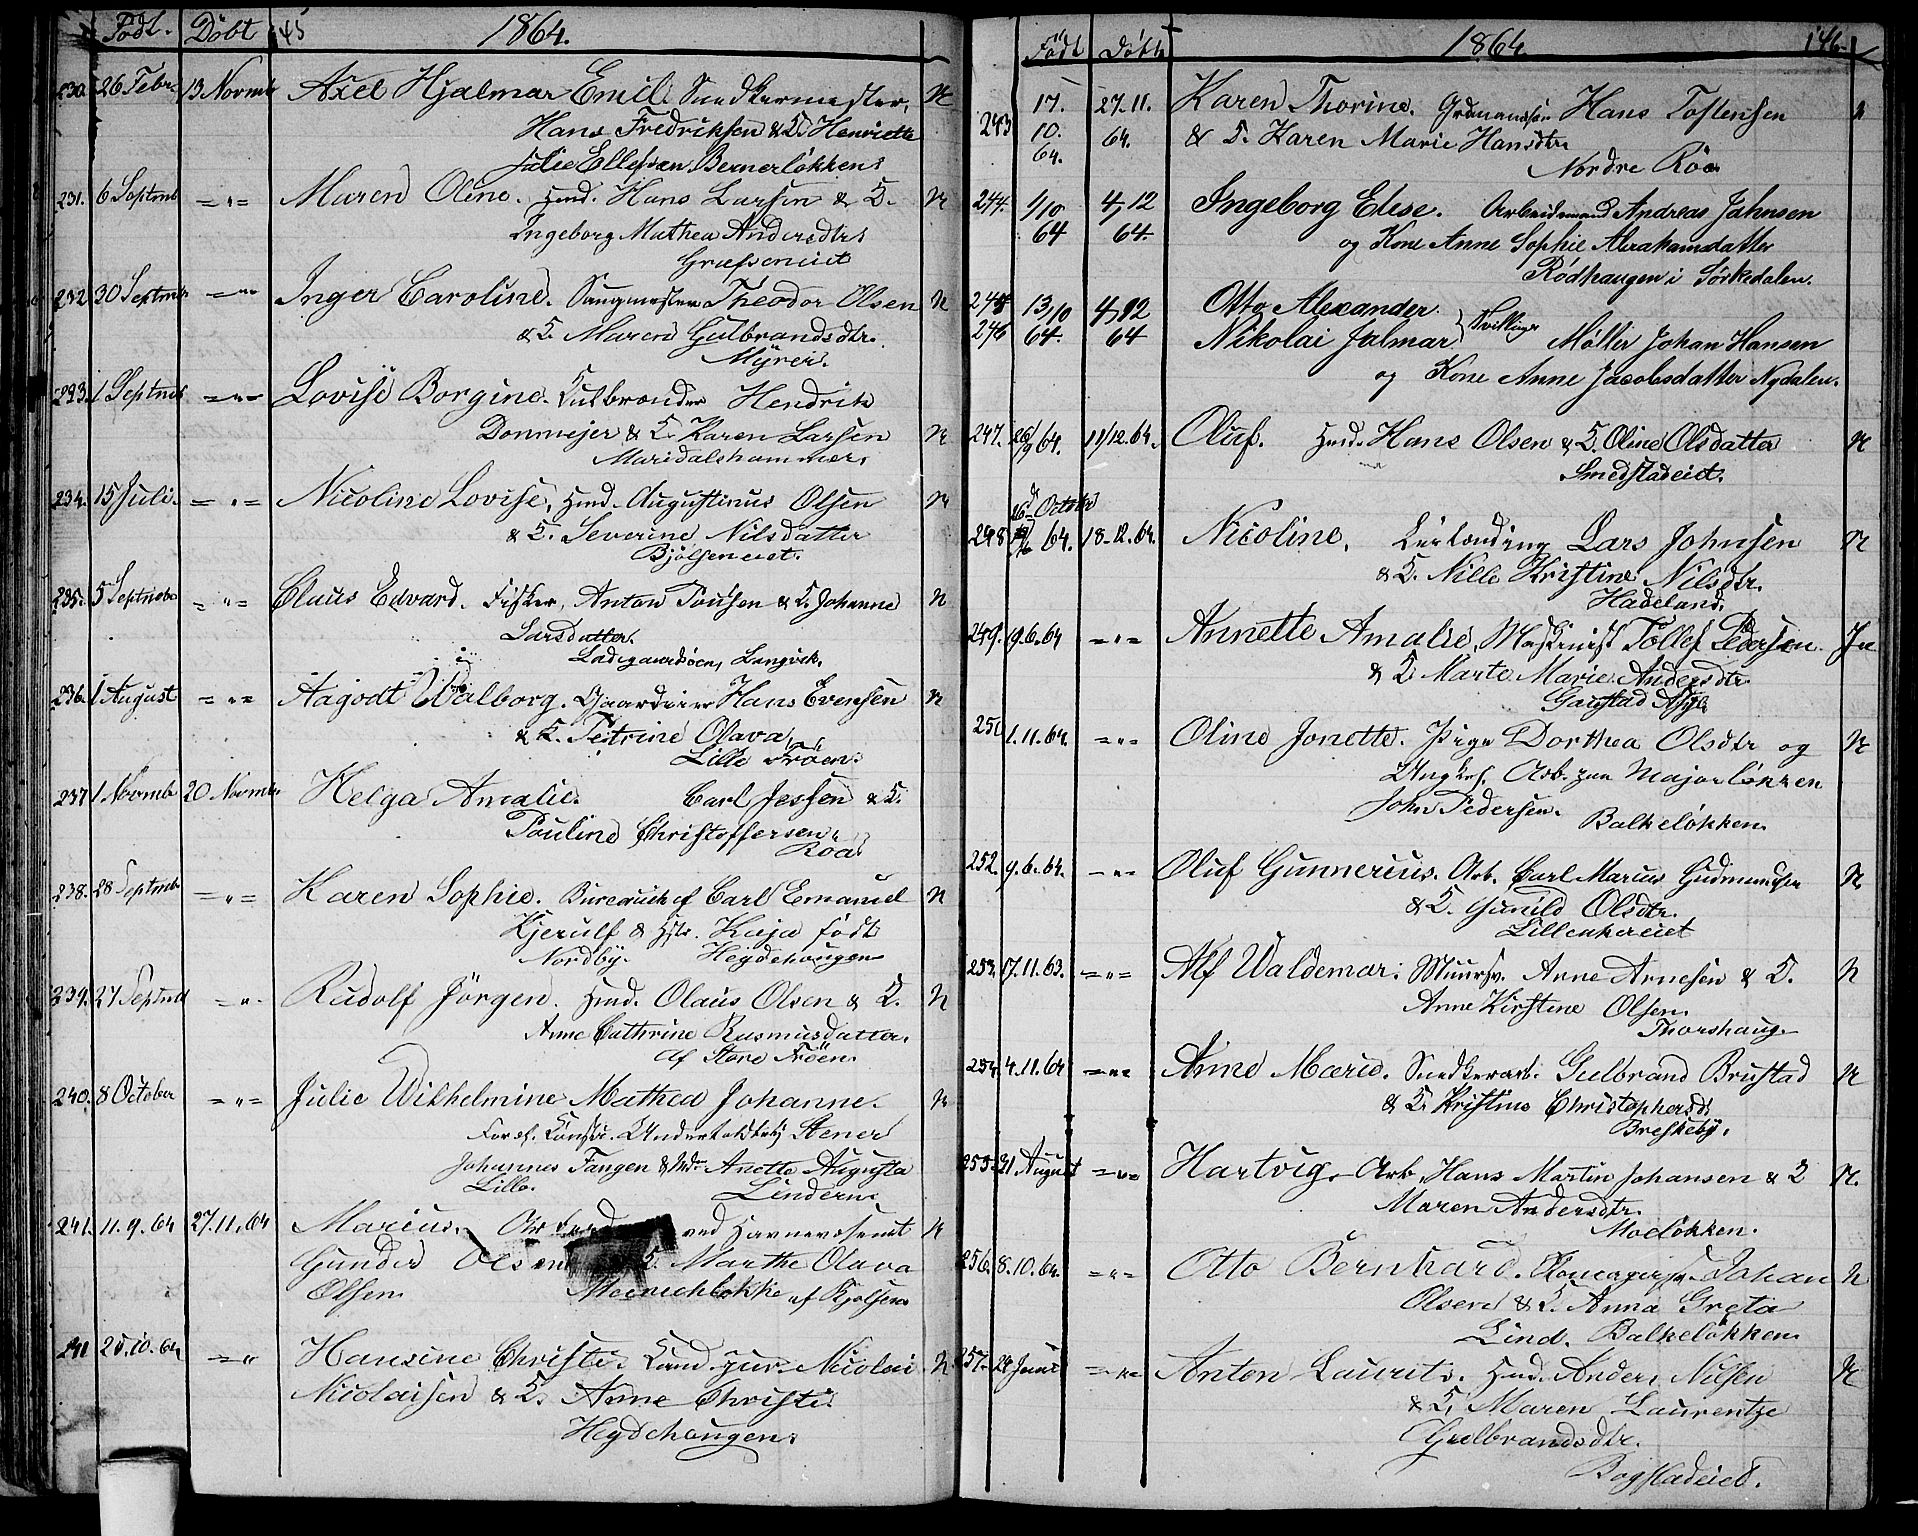 Født. Døbt 145 1864.
230. 26 Febr. 13 Novmb Axel Hjalmar Emil. Snedkermester, N
Hans Fredriksen & K. Henriette
Julie Ellefsen Bernerløkken.
231. 6 Septmb = " = Maren Oline. Hmd. Hans Larsen & K. N
Ingeborg Mathea Andersdtr.
Grefseneiet
232 30 Septmb = " = Inger Caroline. Theodor Olsen N
& K. Maren Gulbrandsdtr.
Myrer.
233. 1 Septmb = " = Lovise Borgine. Hendrik
Donmejer & K. Karen Larsen N
Maridalshammer.
234. 15 Juli. = " = Nicoline Lovise, Hmd. Augustinus Olsen N
& K. Severine Nilsdatter
Bjølseneiet.
235. 5 Septmbr = " = Claus Edvard. Fisker, Anton Poulsen & K. Johanne N
Larsdatter.
Ladegaardsøen, Langvik.
236. 1 August = " = Aagodt Walborg. Hans Evensen N
& K. Petrine Olava
Lille Frøen.
237 1 Novmb 20 Novmb Helga Amalie. Carl Jessen & K.
Pauline Christoffersen.
Røa.
238. 28 Septmb = " = Karen Sophie. Bureauchef Carl Emanuel N
Kjerulf & Hstr. Kaja født
Nordby. Hegdehaugen
239. 27 Septmb = " = Rudolf Jörgen. Hmd. Olaus Olsen & K. N
Anne Cathrine Rasmusdatter.
af Store Frøen.
240. 8 October = " = Julie Wilhelmine Mathea Johanne. N
Stener
Johannes Fangen & Anette Augusta
Lille. Lindern.
241. 11.9.64 27.11.64 Marius. ved Havnevæsenet N
Gunder Olsen K. Marthe Olava
Olsen. af Kjølsen
241 25.10.64 = " Hansine Christi. Cand. jur. Nicolai N
Nicolaisen & K. Anne Christi.
Hegdehaugen.
Født Døbt 1864 146.
243 17. 27.11. Karen Thorine. Hans Tostensen N
10. 64. & K. Karen Marie Hansdtr.
64. Nordre Röa
244. 1/10 4/12 Ingeborg Elise. Arbeidsmand Andreas Jahnsen
64 64. og Kone Anne Sophie Abrahamsdatter
Rødhaugen i Sørkedalen.
245 13/10 4/12 Otto Alexander.
246 64. 64 Nikolai Jalmar. } Tvillinger Møller Johan Hansen
og Kone Anne Jacobsdatter Nydalen.
247. 26/9 64. 11/12.64. Oluf. Hmd. Hans Olsen & K. Oline Olsdatter N
Smedstadeiet.
16d October
248 64. 18-12.64. Nicoline, Lars Johnsen N
& K. Nille Kristine Nilsdtr.
Hadeland.
249. 19.6.64 = " = Annette Amalie, Maskinist Tollef Pedersen.
& K. Marte Marie Andersdtr.
Gaustad Asyl.
250 1.11.64. = " = Oline Jonette. Pige Dorthea Olsdtr og N
Ungkrl. Arb. paa Majorløkken
John Pedersen. Balkeløkken.
252. 9.6.64. = " = Oluf Gunnerius. Arb. Carl Marius Gudmundsen N
& K. Gunild Olsdtr.
Lillenkereiet
253. 17.11.63. = " = Alf Waldemar. Muursv. Arne Arnesen & K. N
Anne Kirstine Olsen.
Thorshaug
254. 4.11.64 = " = Anne Marie. Snedkerarb. Gulbrand Brustad N
& K. Kristine Christophersd.
Breskeby.
255. 21 August = " = Hartvig. Arb. Hans Martin Johansen & K N.
Maren Andersdtr.
Moeløkken.
256. 8.10.64. = " = Otto Bernhard. Johan N
Olsen & K. Anna Greta
Lind. Balkeløkken
257. 28 Juni = " = Anton Laurits. Hmd. Anders Nilsen N
& K. Maren Laurentze
Gulbrandsdtr.
Bogstadeiet.